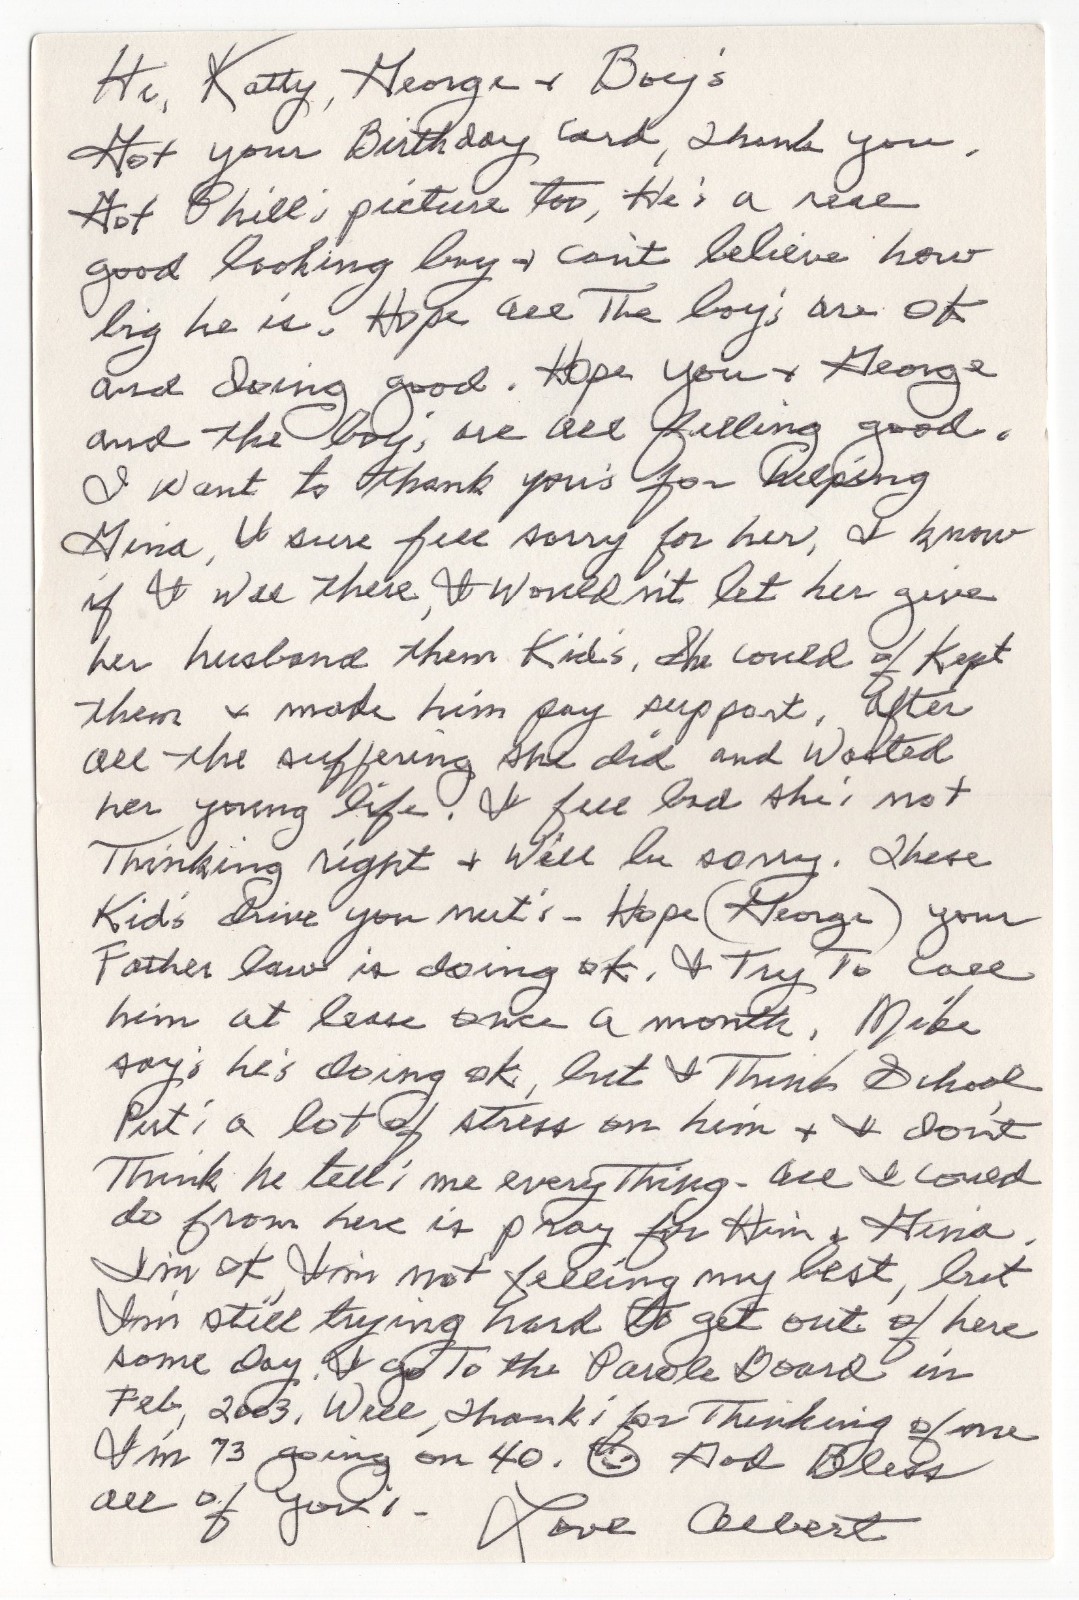 Hi, Katty, George + Boy's
Got your Birthday card, Thank you.
Got Phill's picture too, He's a real
good looking boy + can't believe how
big he is. Hope all The boy's are OK
and doing good. Hope you + George
and the boy's are all felling good.
I want to thank you's for helping
Gina, I sure feel sorry for her, I know
if I was there, I would'nt let her give
her husband them Kid's, She could of Kept
them + made him pay support, after
all the suffering she did and wasted
her young life. I feel bad she's not
Thinking right + will be sorry. These
Kid's drive you nut's - Hope (George) your
Father law is doing ok. I Try To call
him at lease once a month, Mike
say's he's doing ok, but I Think School
Put's a lot of stress on him + I don't
Think he tell's me everyThing - all I could
do from here is pray for Him + Gina.
I'm OK, I'm not felling my best, but
I'm still trying hard to get out of here
some day. I go To the Parole Board in
Feb, 2003. Well, thank's for Thinking of me
I'm 73 going on 40. God Bless
all of you's - Love Albert